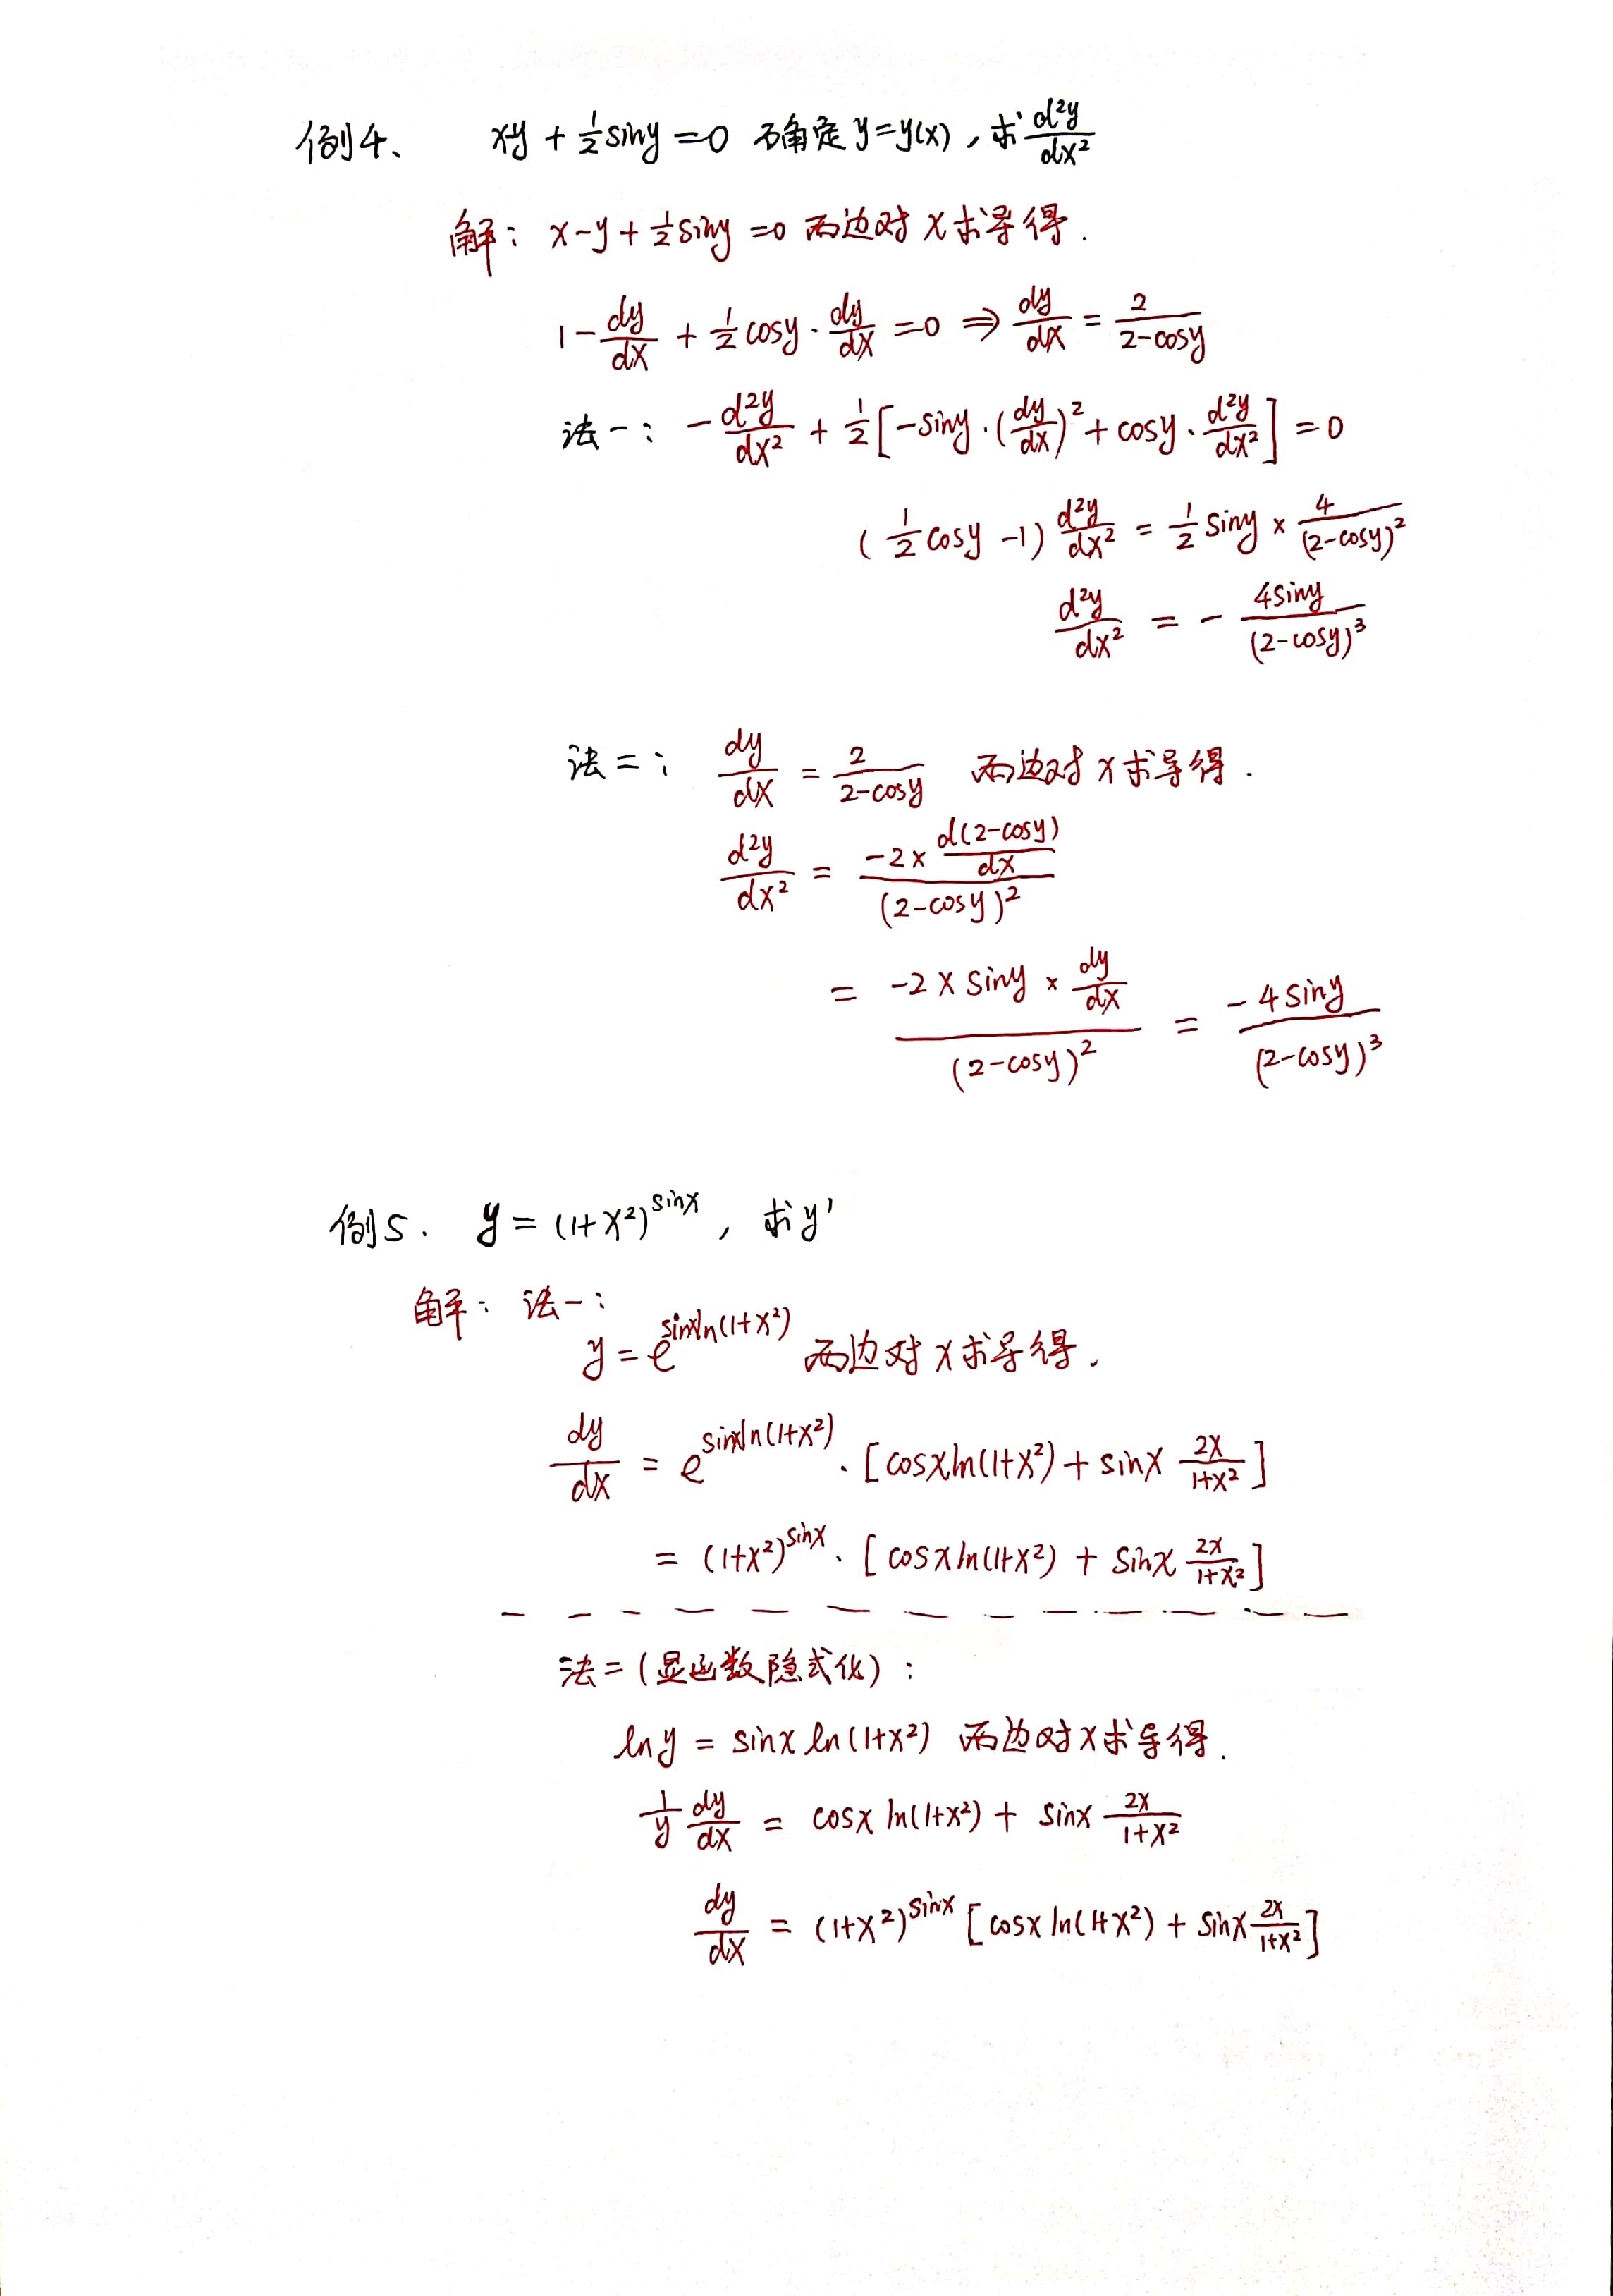 例4、 x-y + 1/2 siny = 0 确定 y=y(x), 求 d²y/dx²
解: x-y + 1/2 siny = 0 两边对 x 求导得.
1 - dy/dx + 1/2 cosy · dy/dx = 0 ⇒ dy/dx = 2/(2-cosy)
法一: - d²y/dx² + 1/2 [-siny · (dy/dx)² + cosy · d²y/dx²] = 0
(1/2 cosy - 1) d²y/dx² = 1/2 siny × 4/(2-cosy)²
d²y/dx² = - 4siny/(2-cosy)³
法二: dy/dx = 2/(2-cosy) 两边对 x 求导得.
d²y/dx² = (-2 × d(2-cosy)/dx)/(2-cosy)²
= (-2 × siny × dy/dx)/(2-cosy)² = -4siny/(2-cosy)³
例5. y = (1+x²)^sinx, 求 y'
解: 法一:
y = e^(sinxln(1+x²)) 两边对 x 求导得.
dy/dx = e^(sinxln(1+x²)) · [cosxln(1+x²) + sinx 2x/(1+x²)]
= (1+x²)^sinx · [cosxln(1+x²) + sinx 2x/(1+x²)]
法二(显函数隐式化):
lny = sinx ln(1+x²) 两边对 x 求导得.
1/y dy/dx = cosx ln(1+x²) + sinx 2x/(1+x²)
dy/dx = (1+x²)^sinx [cosx ln(1+x²) + sinx 2x/(1+x²)]